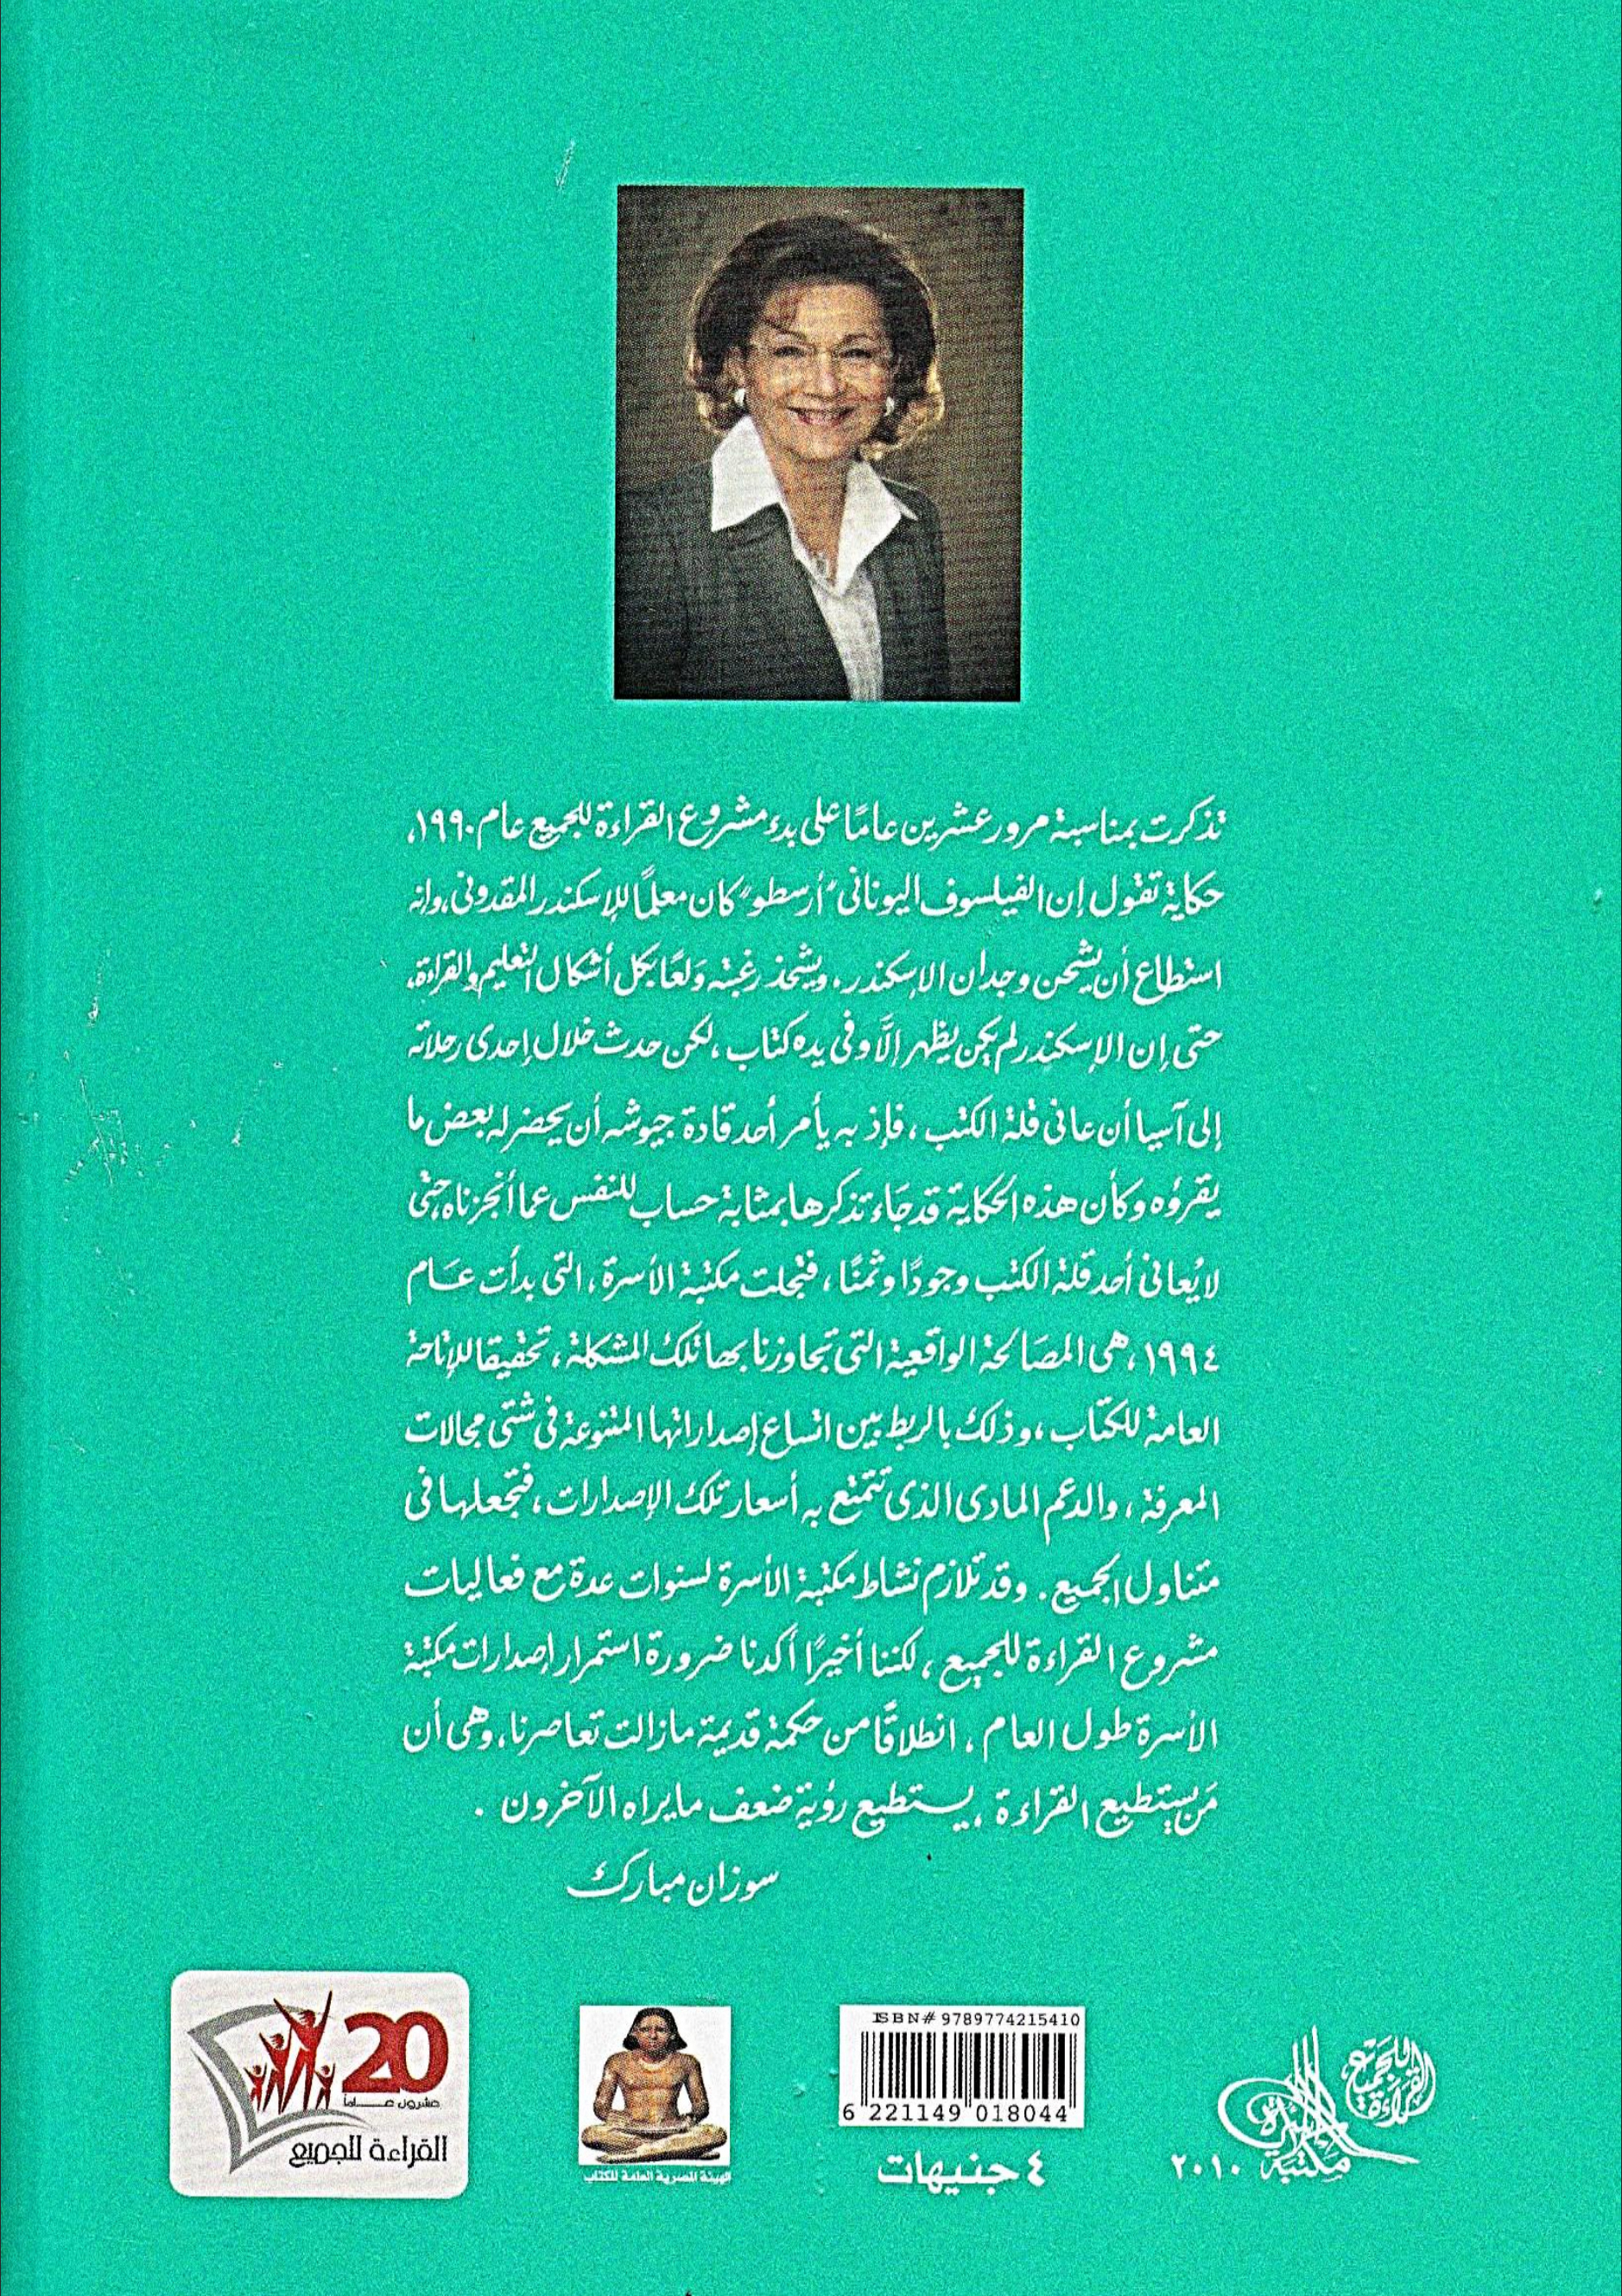 تذكرت بمناسبة مرور عشرين عامًا على بدء مشروع القراءة للجميع عام ١٩٩٠،
حكاية تقول إن الفيلسوف اليونانى "أرسطو" كان معلمًا للإسكندر المقدونى، وإنه
استطاع أن يشحن وجدان الإسكندر. ويشحذ رغبته وَلعًا بكل أشكال التعليم والقراءة،
حتى إن الإسكندر لم يكن يظهر إلَّا وفى يده كتاب ، لكن حدث خلال إحدى رحلاته
إلى آسيا أن عانى قلة الكتب ، فإذ به يأمر أحد قادة جيوشه أن يحضر له بعض ما
يقرؤه وكأن هذه الحكاية قد جَاء تذكرها بمثابة حساب للنفس عما أنجزناه حتى
لا يُعانى أحد قلة الكتب وجودًا وثمنًا ، فتجلت مكتبة الأسرة ، التى بدأت عَام
١٩٩٤ ، هى المصَالحة الواقعية التى تجاوزنا بها تلك المشكلة ، تحقيقا للإتاحة
العامة للكتاب ، وذلك بالربط بين اتساع إصداراتها المتنوعة فى شتى مجالات
المعرفة ، والدعم المادى الذى تتمتع به أسعار تلك الإصدارات ، فتجعلها فى
متناول الجميع . وقد تلازم نشاط مكتبة الأسرة لسنوات عدة مع فعاليات
مشروع القراءة للجميع ، لكننا أخيرًا أكدنا ضرورة استمرار إصدارات مكتبة
الأسرة طول العام ، انطلاقًا من حكمة قديمة مازالت تعاصرنا، وهى أن
مَن يستطيع القراءة ، يستطيع رؤية ضعف مايراه الآخرون .
سوزان مبارك
20
عشرون عـــاماً
القراءة للجميع
الهيئة المصرية العامة للكتاب
ISBN# 9789774215410
6 221149 018044
٤ جنيهات
القراءة للجميع
مكتبة الأسرة
٢٠١٠